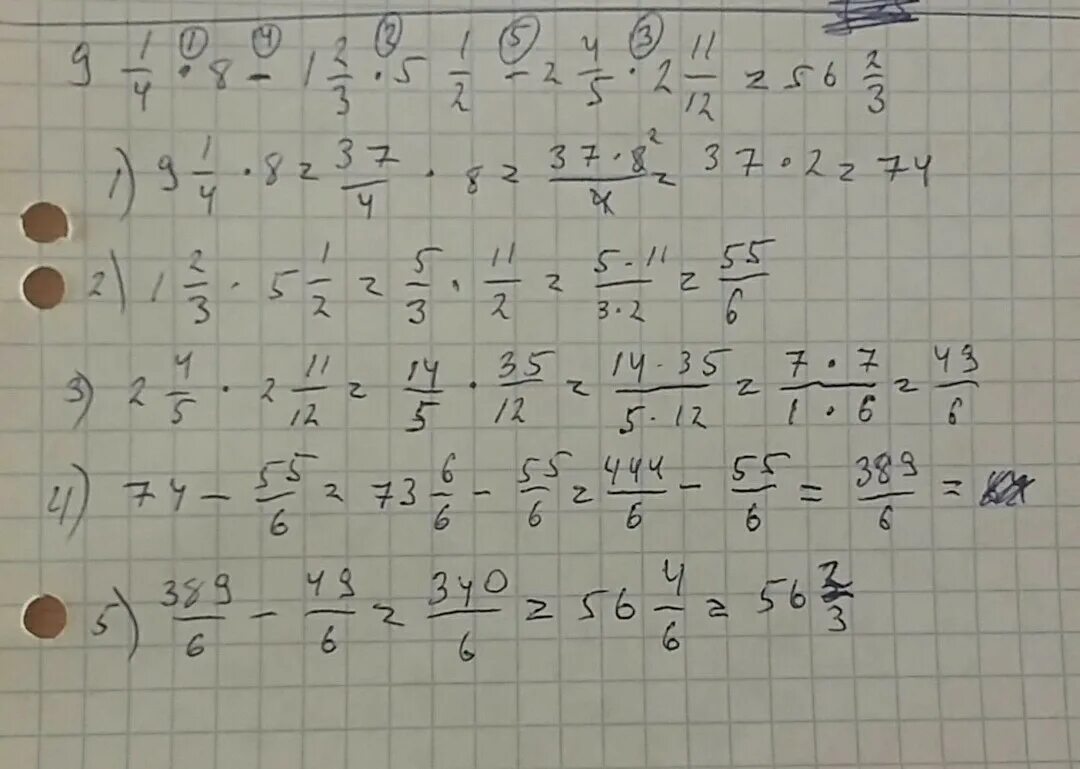 9 1/4 · 8 - 1 2/3 · 5 1/2 - 2 4/5 · 2 11/12 = 56 2/3
① ④ ② ⑤ ③
1) 9 1/4 · 8 = 37/4 · 8 = 37·8/4 2 = 37·2 = 74
2) 1 2/3 · 5 1/2 = 5/3 · 11/2 = 5·11/3·2 = 55/6
3) 2 4/5 · 2 11/12 = 14/5 · 35/12 = 14·35/5·12 = 7·7/1·6 = 49/6
4) 74 - 55/6 = 73 6/6 - 55/6 = 444/6 - 55/6 = 389/6 =
5) 389/6 - 49/6 = 340/6 = 56 4/6 = 56 2/3